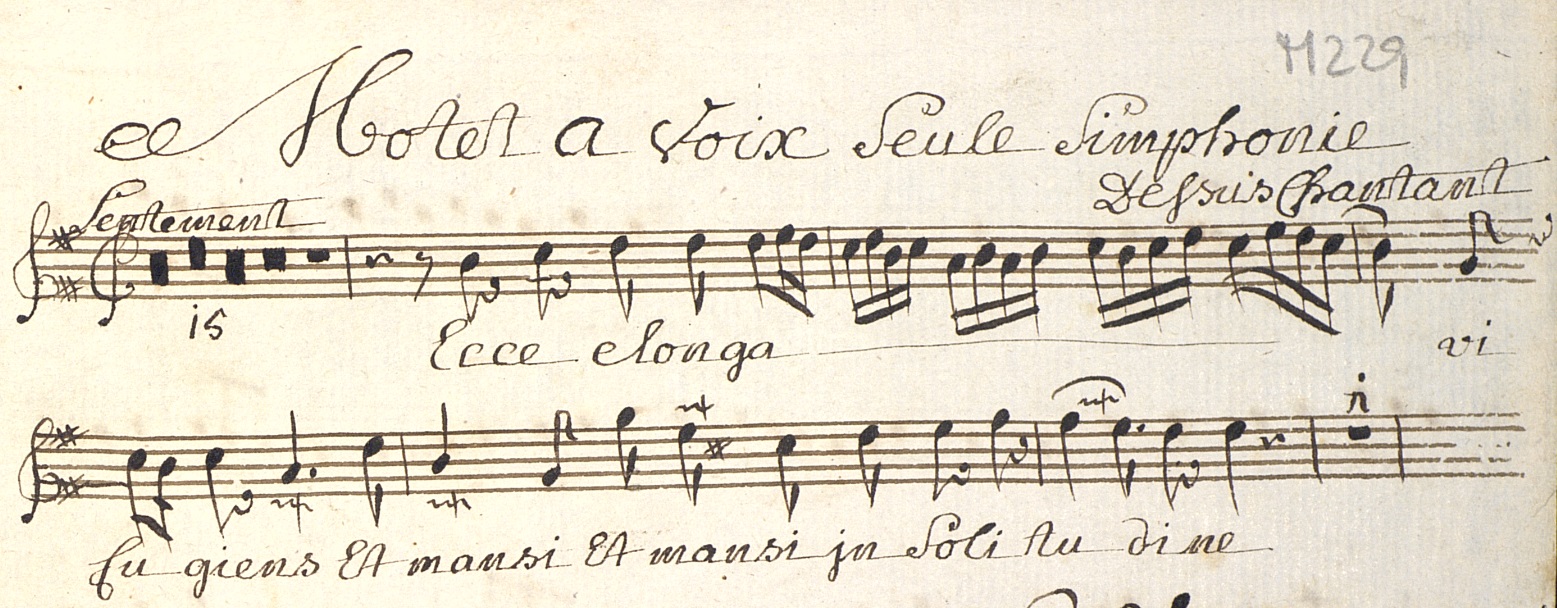 M229
ce Motet a Voix Seule Simphonie
Lentement Dessus Chantant
15
Ecce elonga vi
1
fu giens Et mansi Et mansi jn Soli tu dine